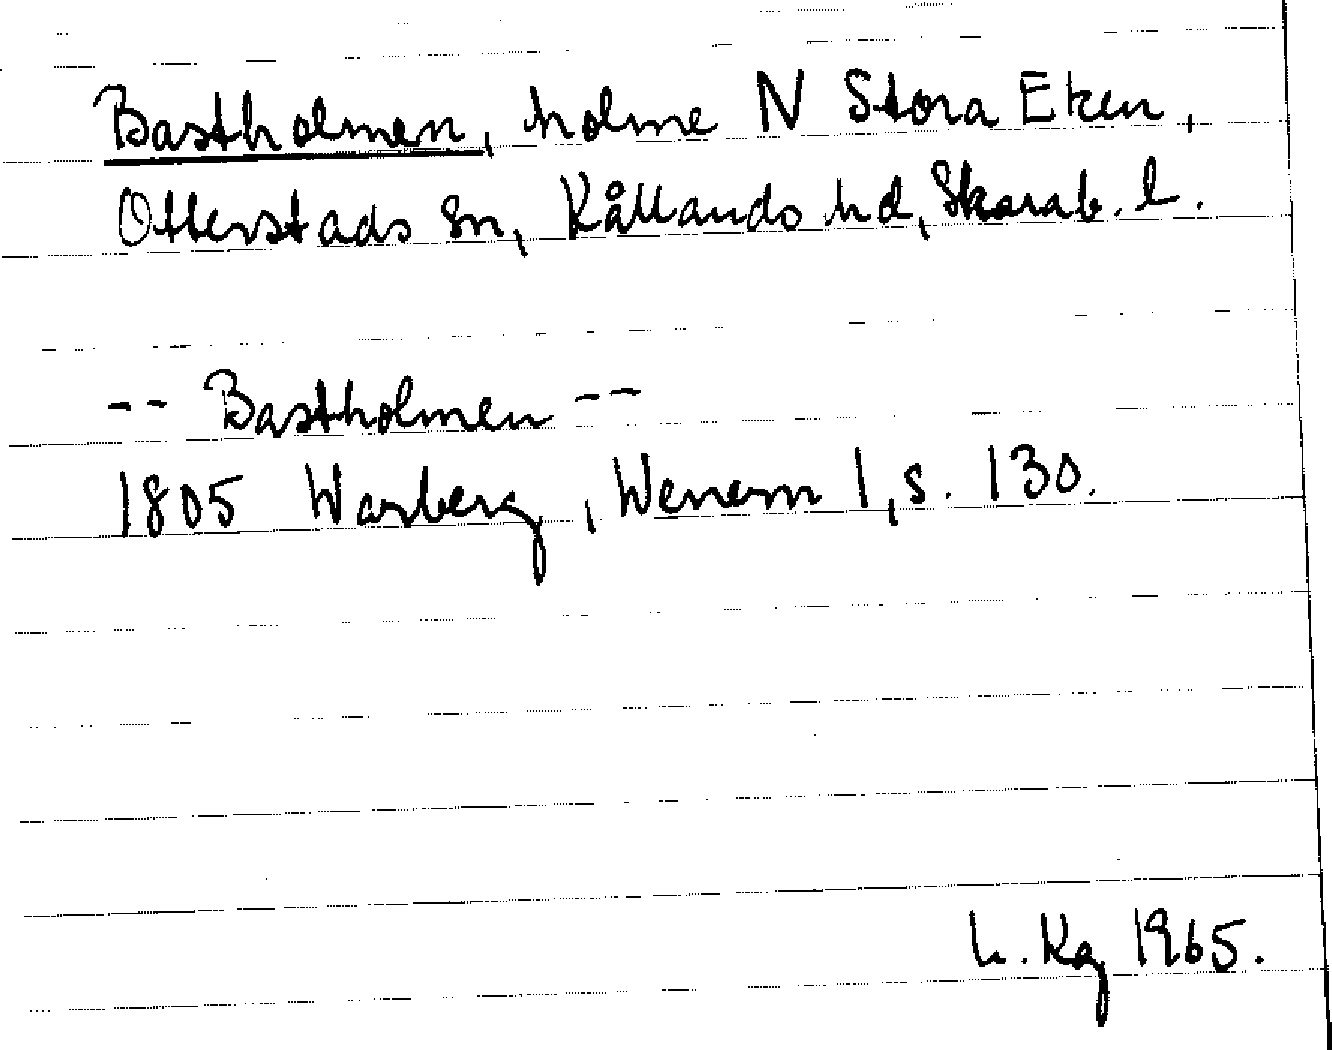 Bastholmen, holme N Stora Eken,
Otterstads sn, Kållands hd, Skarab. l.
-- Bastholmen --
1805 Warberg, Wenern 1, s. 130.
L. Kg 1965.